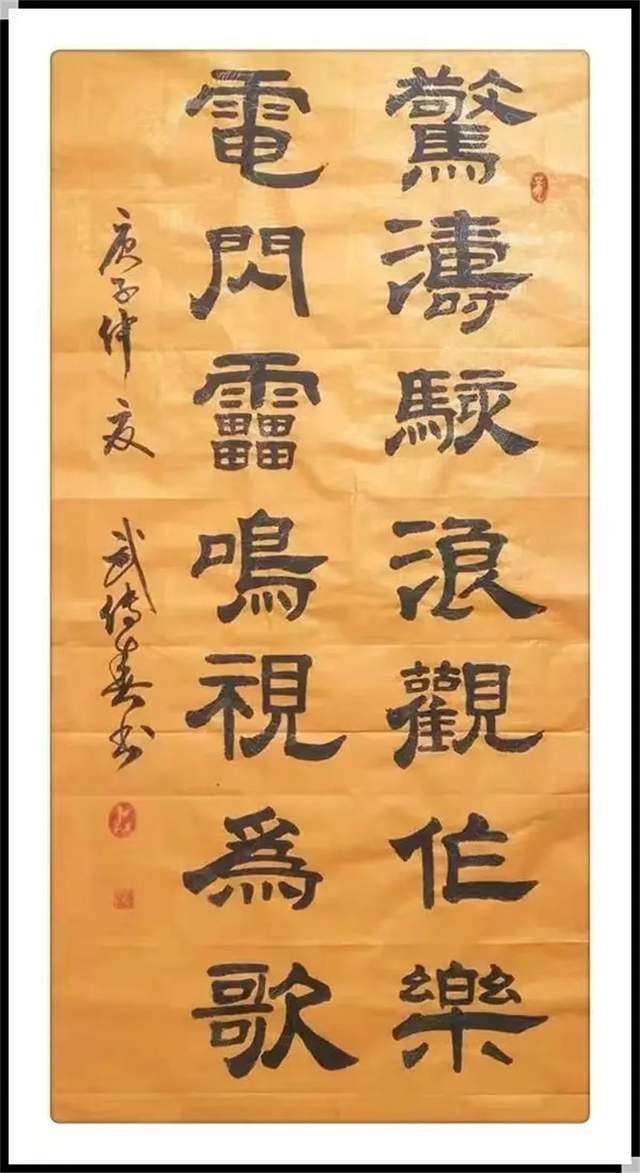 驚濤駭浪觀作樂
電閃靁鳴視爲歌
庚子仲夏
武传春书